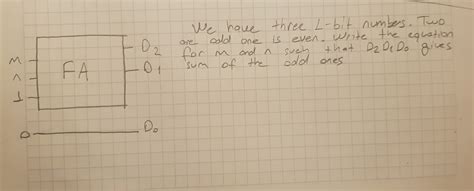 We have three L-bit numbers. Two
are odd one is even. Write the equation
for m and n such that D2D1D0 gives
sum of the odd ones
D2
m
n FA D1
1
0 D0